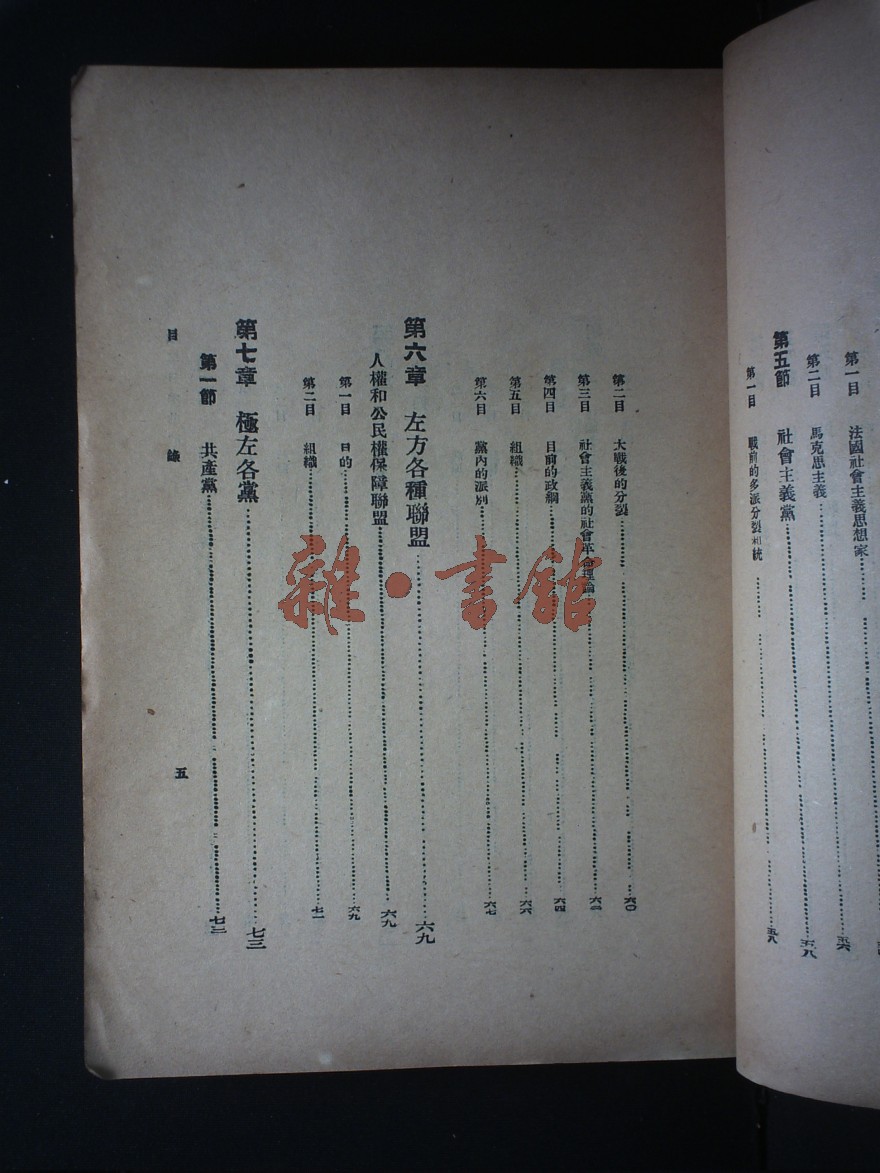 第一目 法國社會主義思想家
第二目 馬克思主義 五八
第五節 社會主義黨
第一目 戰前的多派分裂和統 五八
第二目 大戰後的分裂 六〇
第三目 社會主義黨的社會革命理論
第四目 目前的政綱 六四
第五目 組織 六六
第六目 黨內的派別 六七
第六章 左方各種聯盟 六九
人權和公民權保障聯盟 六九
第一目 目的 六九
第二目 組織 七一
第七章 極左各黨 七三
第一節 共產黨
目錄
五
雜·書館